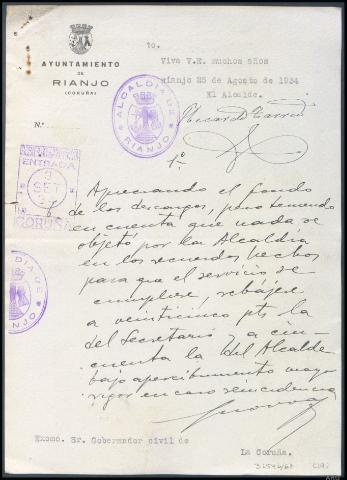 to.
AYUNTAMIENTO
DE
RIANJO
(CORUÑA)
Viva V.E. muchos años
Rianjo 25 de Agosto de 1934
El Alcalde.
ALCALDIA DE
RIANJO
N.º
1º
ENTRADA
3
SET
CORUÑA
Apreciando el fondo
de los descargos, pero teniendo
en cuenta que nada se
objetó por la Alcaldía
en los recuerdos hechos
para que el servicio se
cumpliere, rebájese
a veinticinco pts la
del Secretario y a cin-
cuenta la del Alcalde
bajo apercibimiento mayor
rigor en caso reincidencia
ALCALDIA DE
RIANJO
Excmo. Sr. Gobernador civil de
La Coruña.